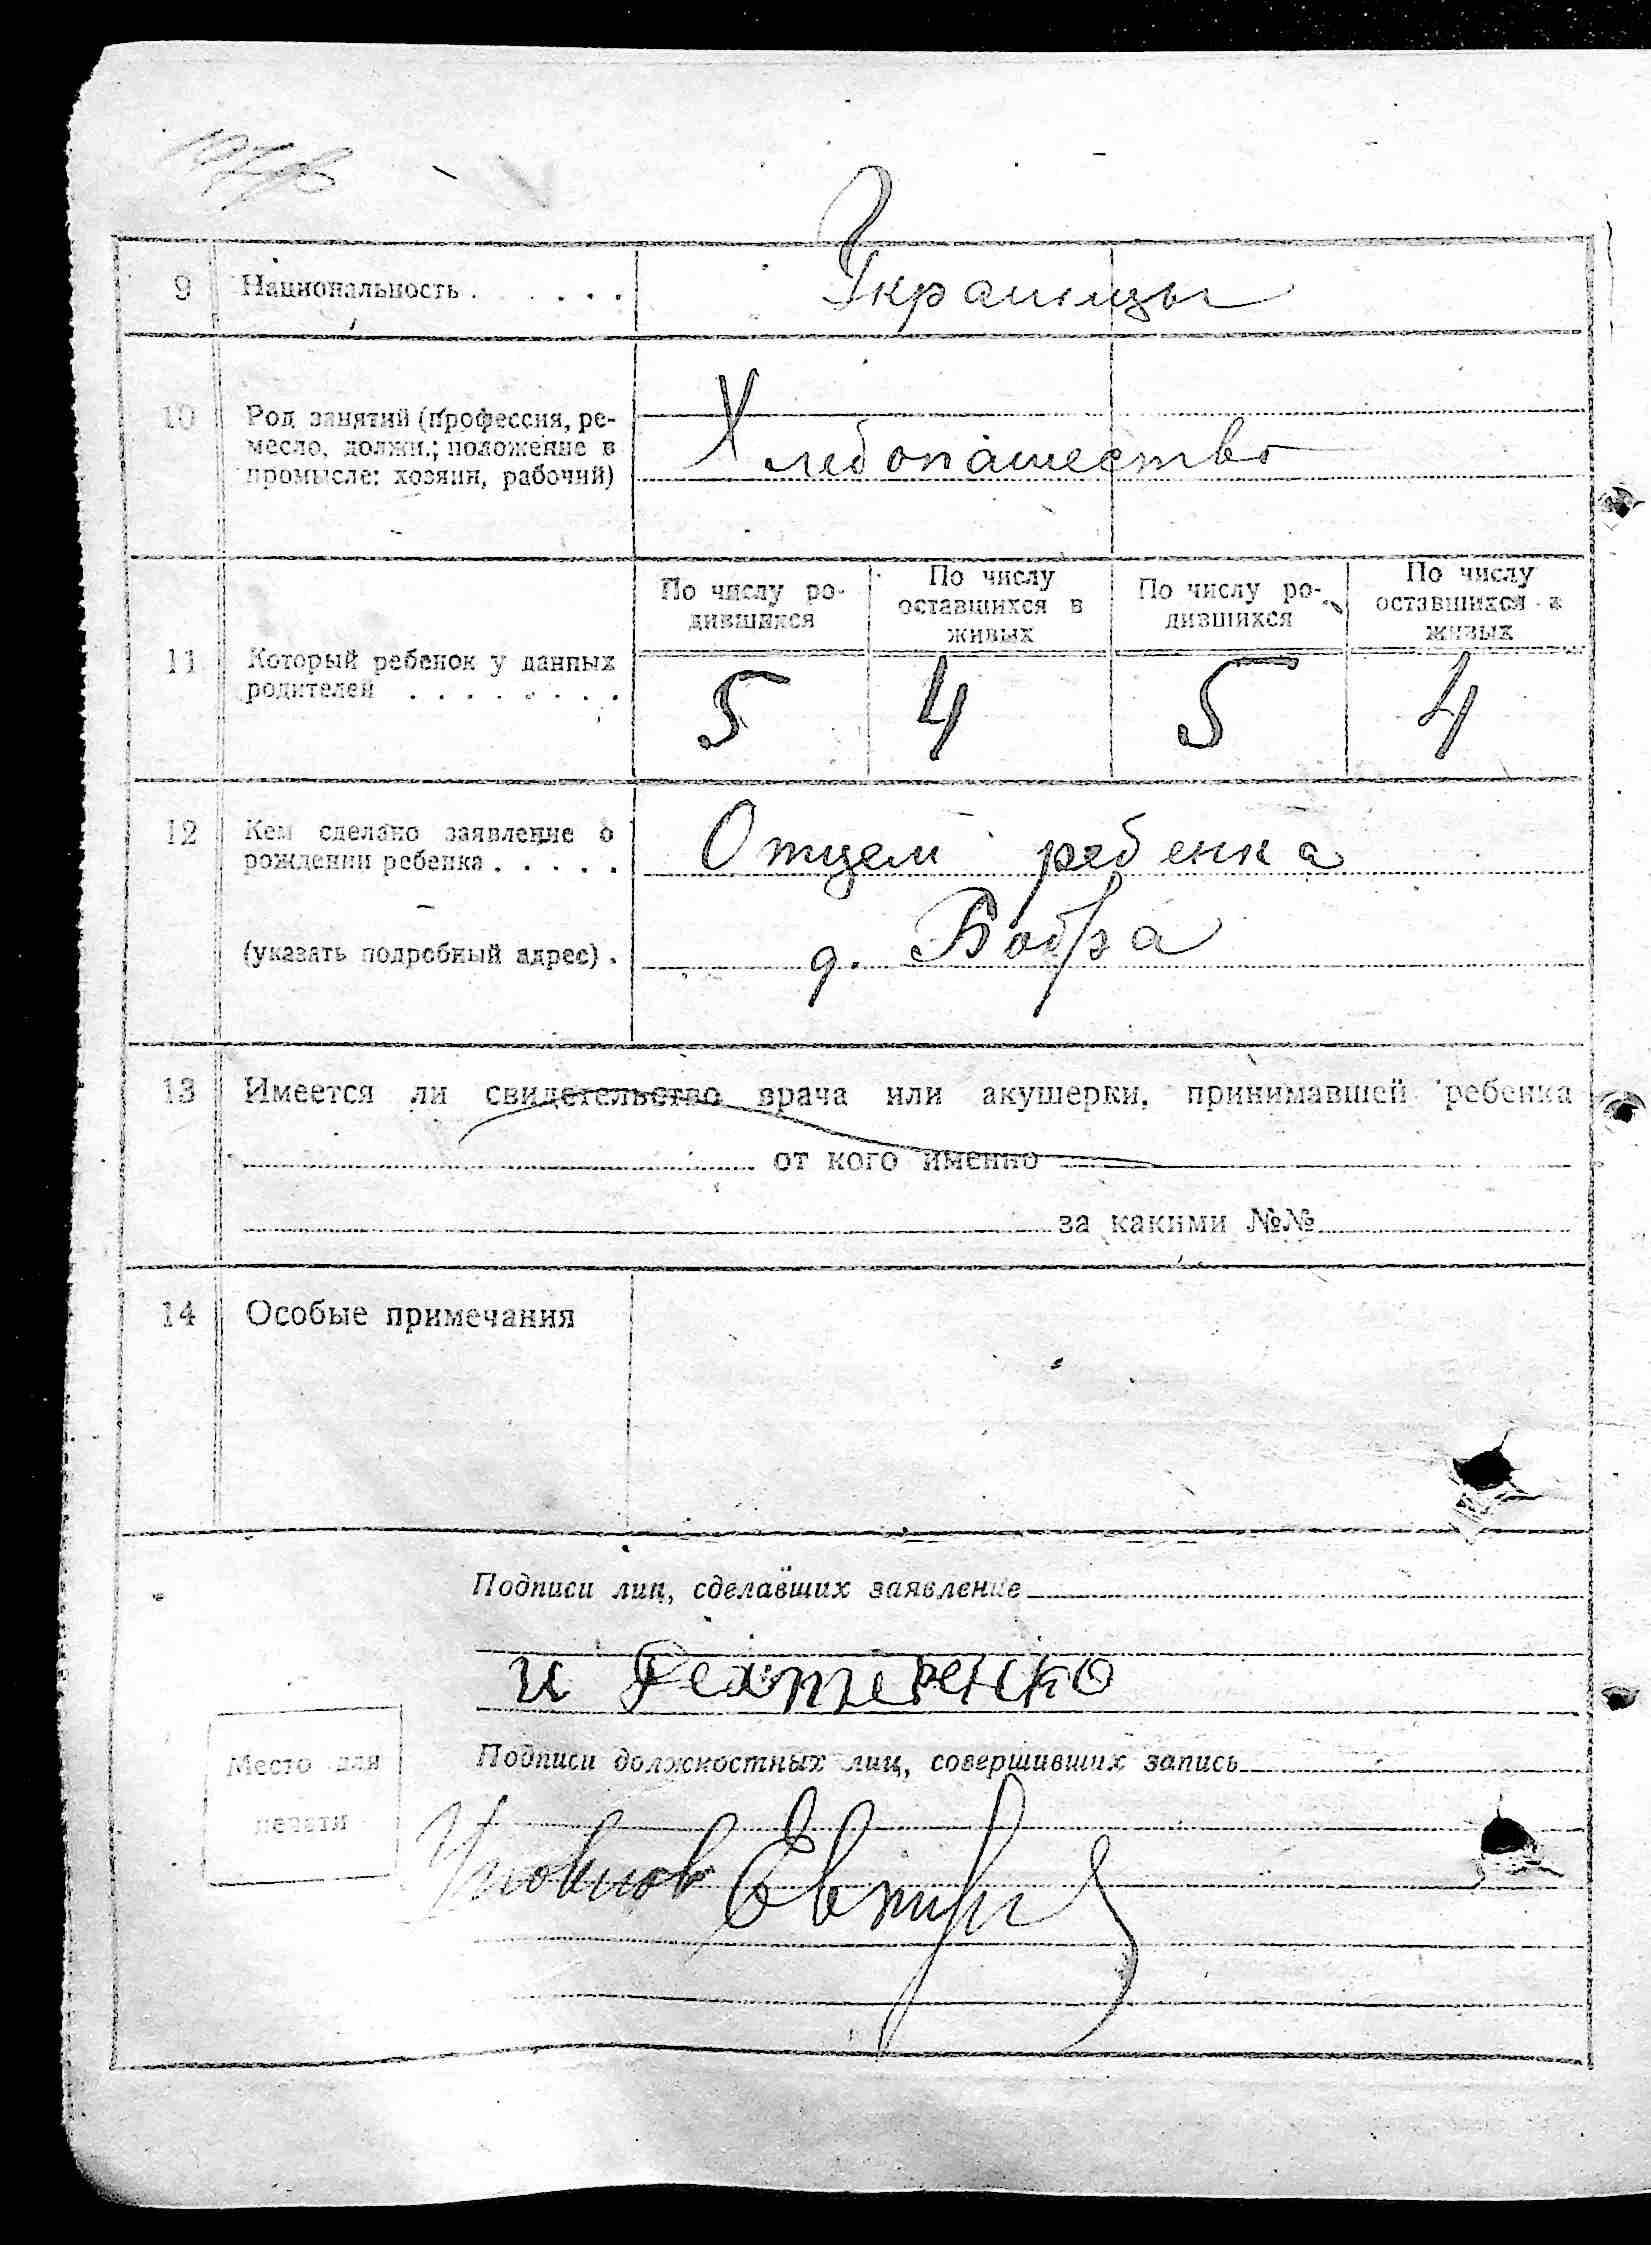 9 Национальность . . . . . . Украинцы
10 Род занятий (профессия, ре-
месло, должн.; положение в
промысле: хозяин, рабочий)
Хлебопашество
По числу ро-
дившихся
По числу
оставшихся в
живых
По числу ро-
дившихся
По числу
оставшихся в
живых
11 Который ребенок у данных
родителей . . . . . . . .
5 4 5 4
12 Кем сделано заявление о
рождении ребенка . . . . .
Отцем ребенка
(указать подробный адрес) . д. Бобра
13 Имеется ли свидетельство врача или акушерки, принимавшей ребенка
от кого именно
за какими №№
14 Особые примечания
Подписи лиц, сделавших заявление
и
Подписи должностных лиц, совершивших запись
Место для
печати